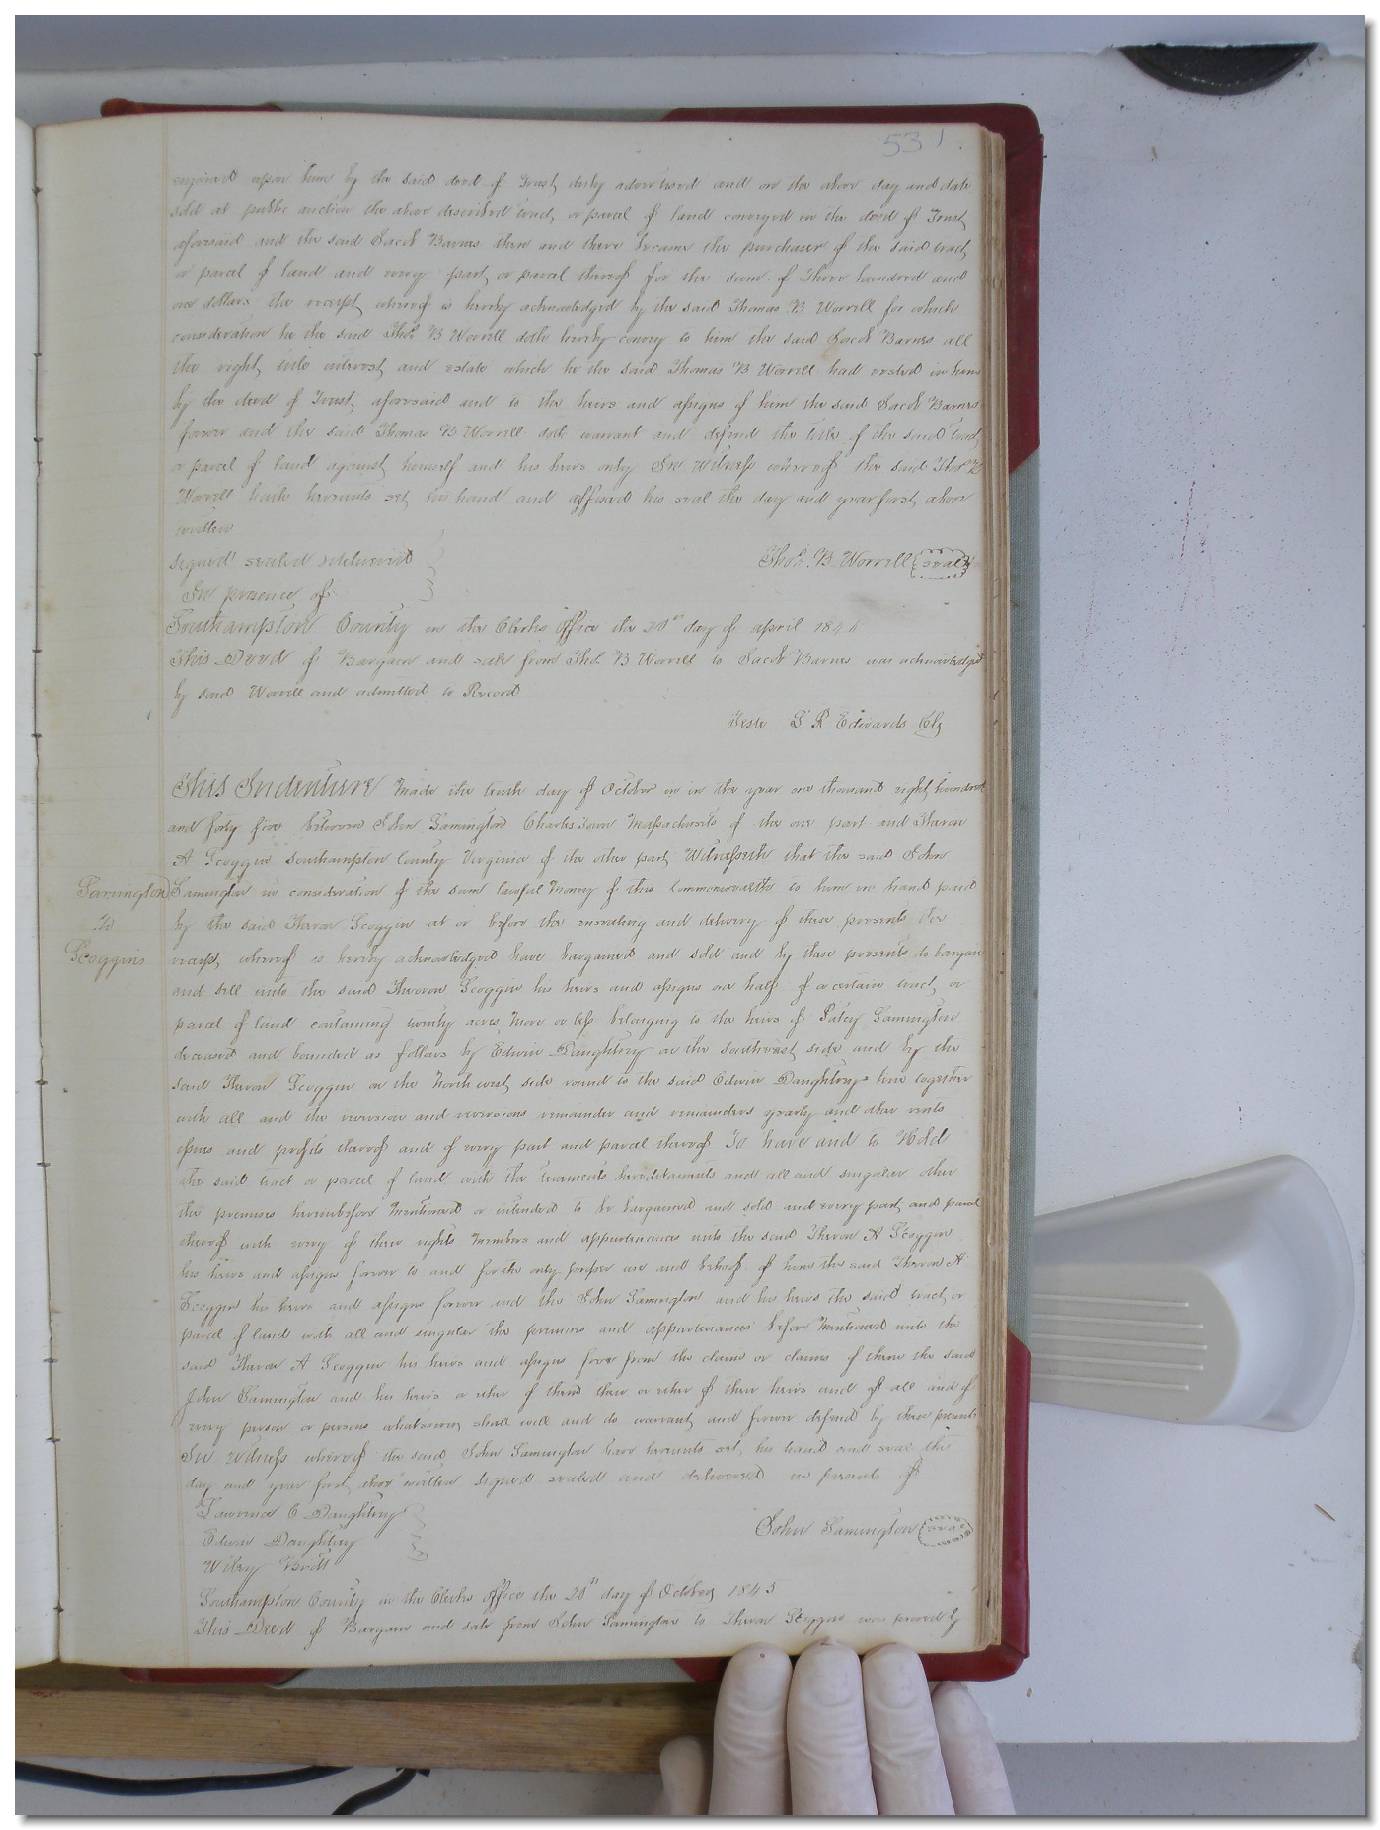 531.
enjoined upon him by the said deed of Trust duly advertised and on the above day and date
sold at public auction the above described tract or parcel of land conveyed in the deed of Trust
aforesaid and the said Jacob Barnes then and there became the purchaser of the said tract
or parcel of land and every part or parcel thereof for the sum of Three hundred and
one dollars the receipt whereof is hereby acknowledged by the said Thomas B Worrill for which
consideration he the said Thos B Worrill doth hereby convey to him the said Jacob Barnes all
the right title interest and estate which he the said Thomas B Worrill had vested in him
by the deed of Trust aforesaid and to the heirs and assigns of him the said Jacob Barnes
forever and the said Thomas B Worrill doth warrant and defend the title of the said tract
or parcel of land against himself and his heirs only In Witness whereof the said Thos B
Worrill hath hereunto set his hand and affixed his seal the day and year first above
written
signed sealed & delivered
In presence of
Thos. B. Worrill {seal}
Southampton County in the Clerks Office the 20th day of April
This Deed of Bargain and sale from Thos B Worrill to Jacob Barnes was acknowledged
by said Worrill and admitted to Record
Teste L R Edwards Clk
This Indenture Made the tenth day of October in in the year one thousand eight hundred
and forty five between John Samington Charlestown Massachusets of the one part and Theron
A Scoggin Southampton County Virginia of the other part Witnesseth that the said John
Samington
to
Scoggins
Samington in consideration of the sum lawful Money of this Commonwealth to him in hand paid
by the said Theron Scoggin at or before the ensealing and delivery of these presents the
receipt whereof is hereby acknowledged have bargained and sold and by these presents do bargain
and sell unto the said Theoron Scoggin his heirs and assigns one half of a certain tract or
parcel of land containing twenty acres More or less belonging to the heirs of Patcy Samington
deceased and bounded as follows by Edwin Daughtrey on the southwest side and by the
said Theron Scoggin on the North west side round to the said Edwin Daughtreys line together
with all and the reversion and reversions remainder and remainders yearly and other rents
issues and profits thereof and of every part and parcel thereof To have and to Hold
the said tract or parcel of land with the tenements hereditaments and all and singular other
the premises hereinbefore Mentioned or intended to be bargained and sold and every part and parcel
thereof with every of their rights Members and appurtenances unto the said Theron A Scoggin
his heirs and assigns forever to and for the only proper use and behoof of him the said Theron A
Scoggin his heirs and assigns forever and the John Samington and his heirs the said tract or
parcel of land with all and singular the premises and appurtenances before Mentioned unto the
said Theron A Scoggin his heirs and assigns from the claim or claims of them the said
John Samington and his heirs or of them their or of their heirs and of all and of
every person or persons whatsoever shall will and do warrant and forever defend by these presents
In witness whereof the said John Samington have hereunto set his hand and seal the
day and year first above written signed sealed and delivered in presents of
Lawrence C Daughtrey
Edwin Daughtrey
Wiley Britt
John Samington {seal}
Southampton County in the Clerks office the 20th day of October 1845
This Deed of Bargain and sale from John Samington to Theron Scoggins was proved by